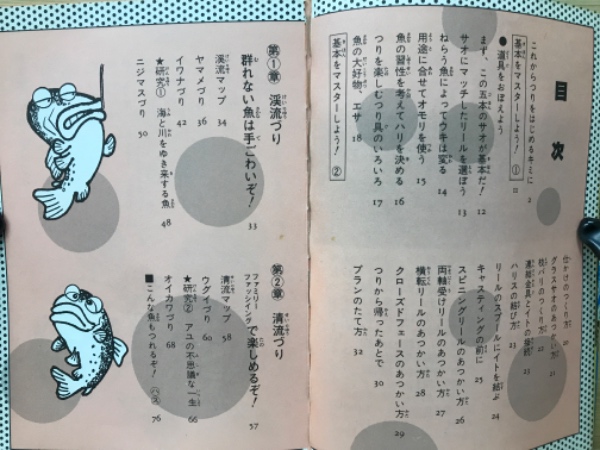 目次
これからつりをはじめるキミに 2
基本をマスターしよう! ①
● 道具をおぼえよう 11
まず、この五本のサオが基本だ! 12
サオにマッチしたリールを選ぼう 13
ねらう魚によってウキは変る 14
用途に合せてオモリを使う 15
魚の習性を考えてハリを決める 16
つりを楽しむつり具のいろいろ 17
魚の大好物、エサ 18
基本をマスターしよう! ②
仕かけのつくり方 20
グラスサオのあつかい方 21
枝バリのつくり方 22
連結金具とイトの接続
ハリスの結び方 23
リールのスプールにイトを結ぶ 24
キャスティングの前に 25
スピニングリールのあつかい方 26
両軸受けリールのあつかい方 27
横転リールのあつかい方 28
クローズドフェースのあつかい方 29
つりから帰ったあとで 30
プランのたて方 32
第①章 渓流づり
群れない魚は手ごわいぞ! 33
渓流マップ 34
ヤマメづり 36
イワナづり 42
★研究① 海と川をゆき来する魚 48
ニジマスづり 50
第②章 清流づり
ファミリーフィッシングで楽しめるぞ! 57
清流マップ 58
ウグイづり 60
★研究② アユの不思議な一生 66
オイカワづり 68
■こんな魚もつれるぞ! 76